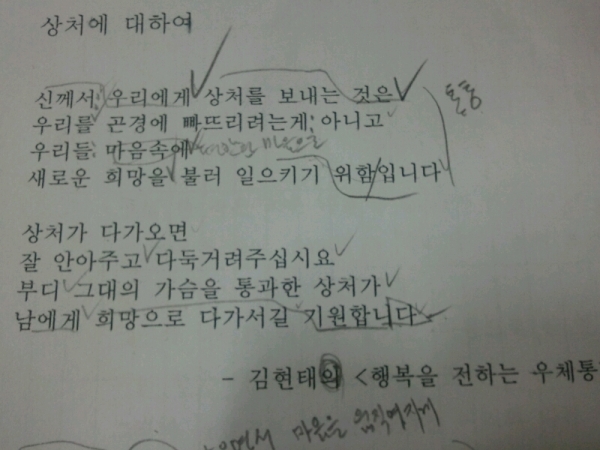 상처에 대하여
신께서 우리에게 상처를 보내는 것은
우리를 곤경에 빠뜨리려는게 아니고
우리들 마음속에
새로운 희망을 불러 일으키기 위함입니다
상처가 다가오면
잘 안아주고 다둑거려주십시요
부디 그대의 가슴을 통과한 상처가
남에게 희망으로 다가서길 지원합니다
- 김현태의 <행복을 전하는 우체통
마음을 움직여지게